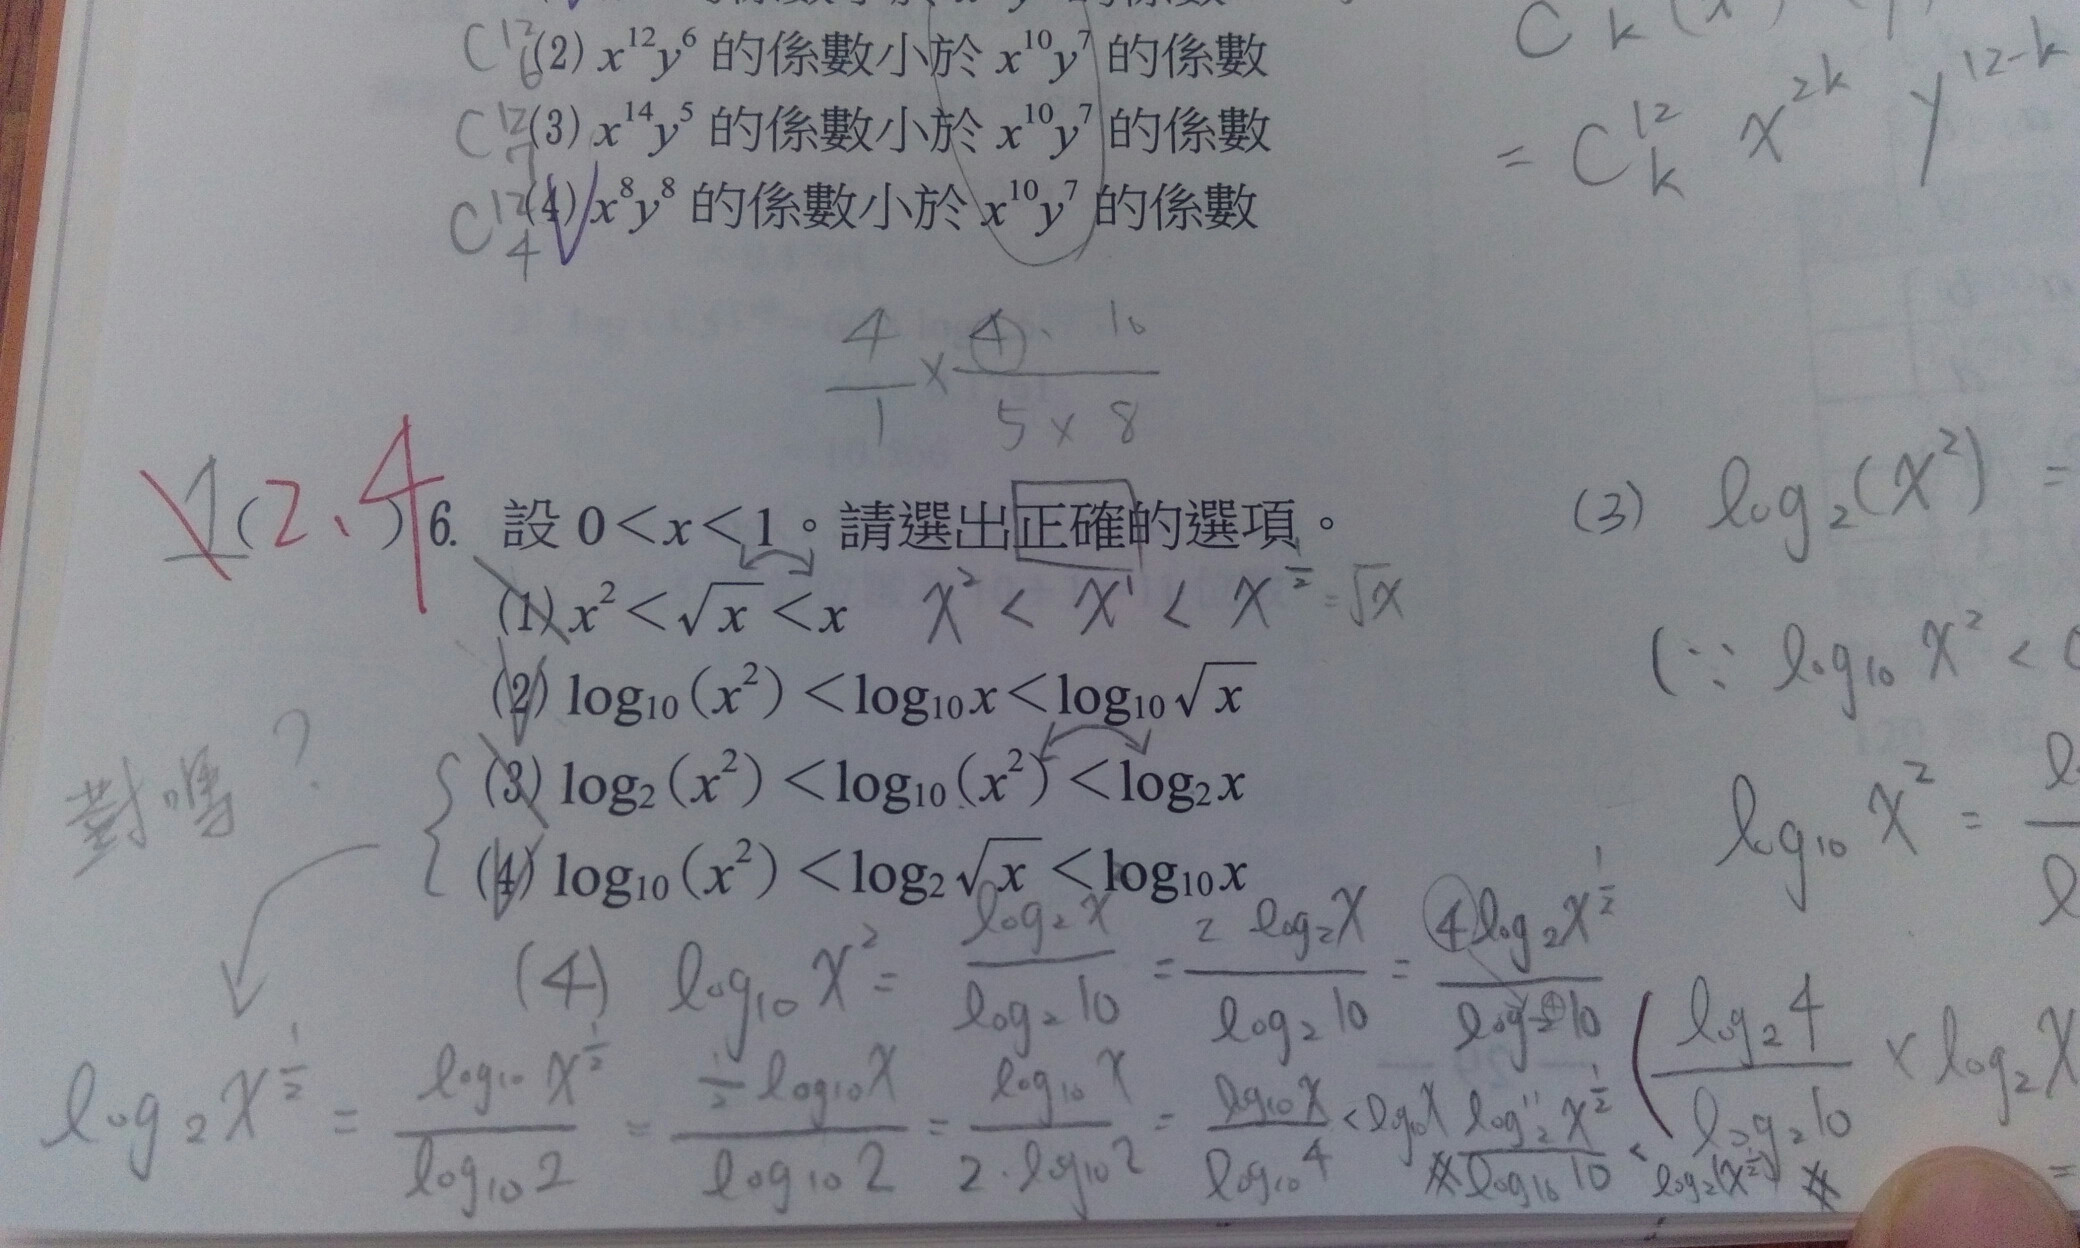 (2) x¹²y⁶ 的係數小於 x¹⁰y⁷ 的係數
(3) x¹⁴y⁵ 的係數小於 x¹⁰y⁷ 的係數
(4) x⁸y⁸ 的係數小於 x¹⁰y⁷ 的係數
C¹²₆
C¹²₇
C¹²₄
= C¹²ₖ x²ᵏ y¹²⁻ᵏ
4/1 × 4· 10/5×8
1 (2、4) 6. 設 0<x<1。請選出正確的選項。
(1) x²<√x<x x² < x¹ < x^(1/2) = √x
(2) log₁₀(x²)<log₁₀x<log₁₀√x
(3) log₂(x²)<log₁₀(x²)<log₂x
(4) log₁₀(x²)<log₂√x<log₁₀x
對嗎?
(3) log₂(x²) =
(∵ log₁₀ x² <
log₁₀ x² =
(4) log₁₀ x² = log₂ x / log₂ 10 = 2 log₂ x / log₂ 10 = 4 log₂ x^(1/2) / log₂ 10
( log₂ 4 / log₂ 10 × log₂ x
log₂ x^(1/2) = log₁₀ x^(1/2) / log₁₀ 2 = 1/2 log₁₀ x / log₁₀ 2 = log₁₀ x / 2·log₁₀ 2 = log₁₀ x / log₁₀ 4 < log₁₀ x
< log₂(x^(1/2))